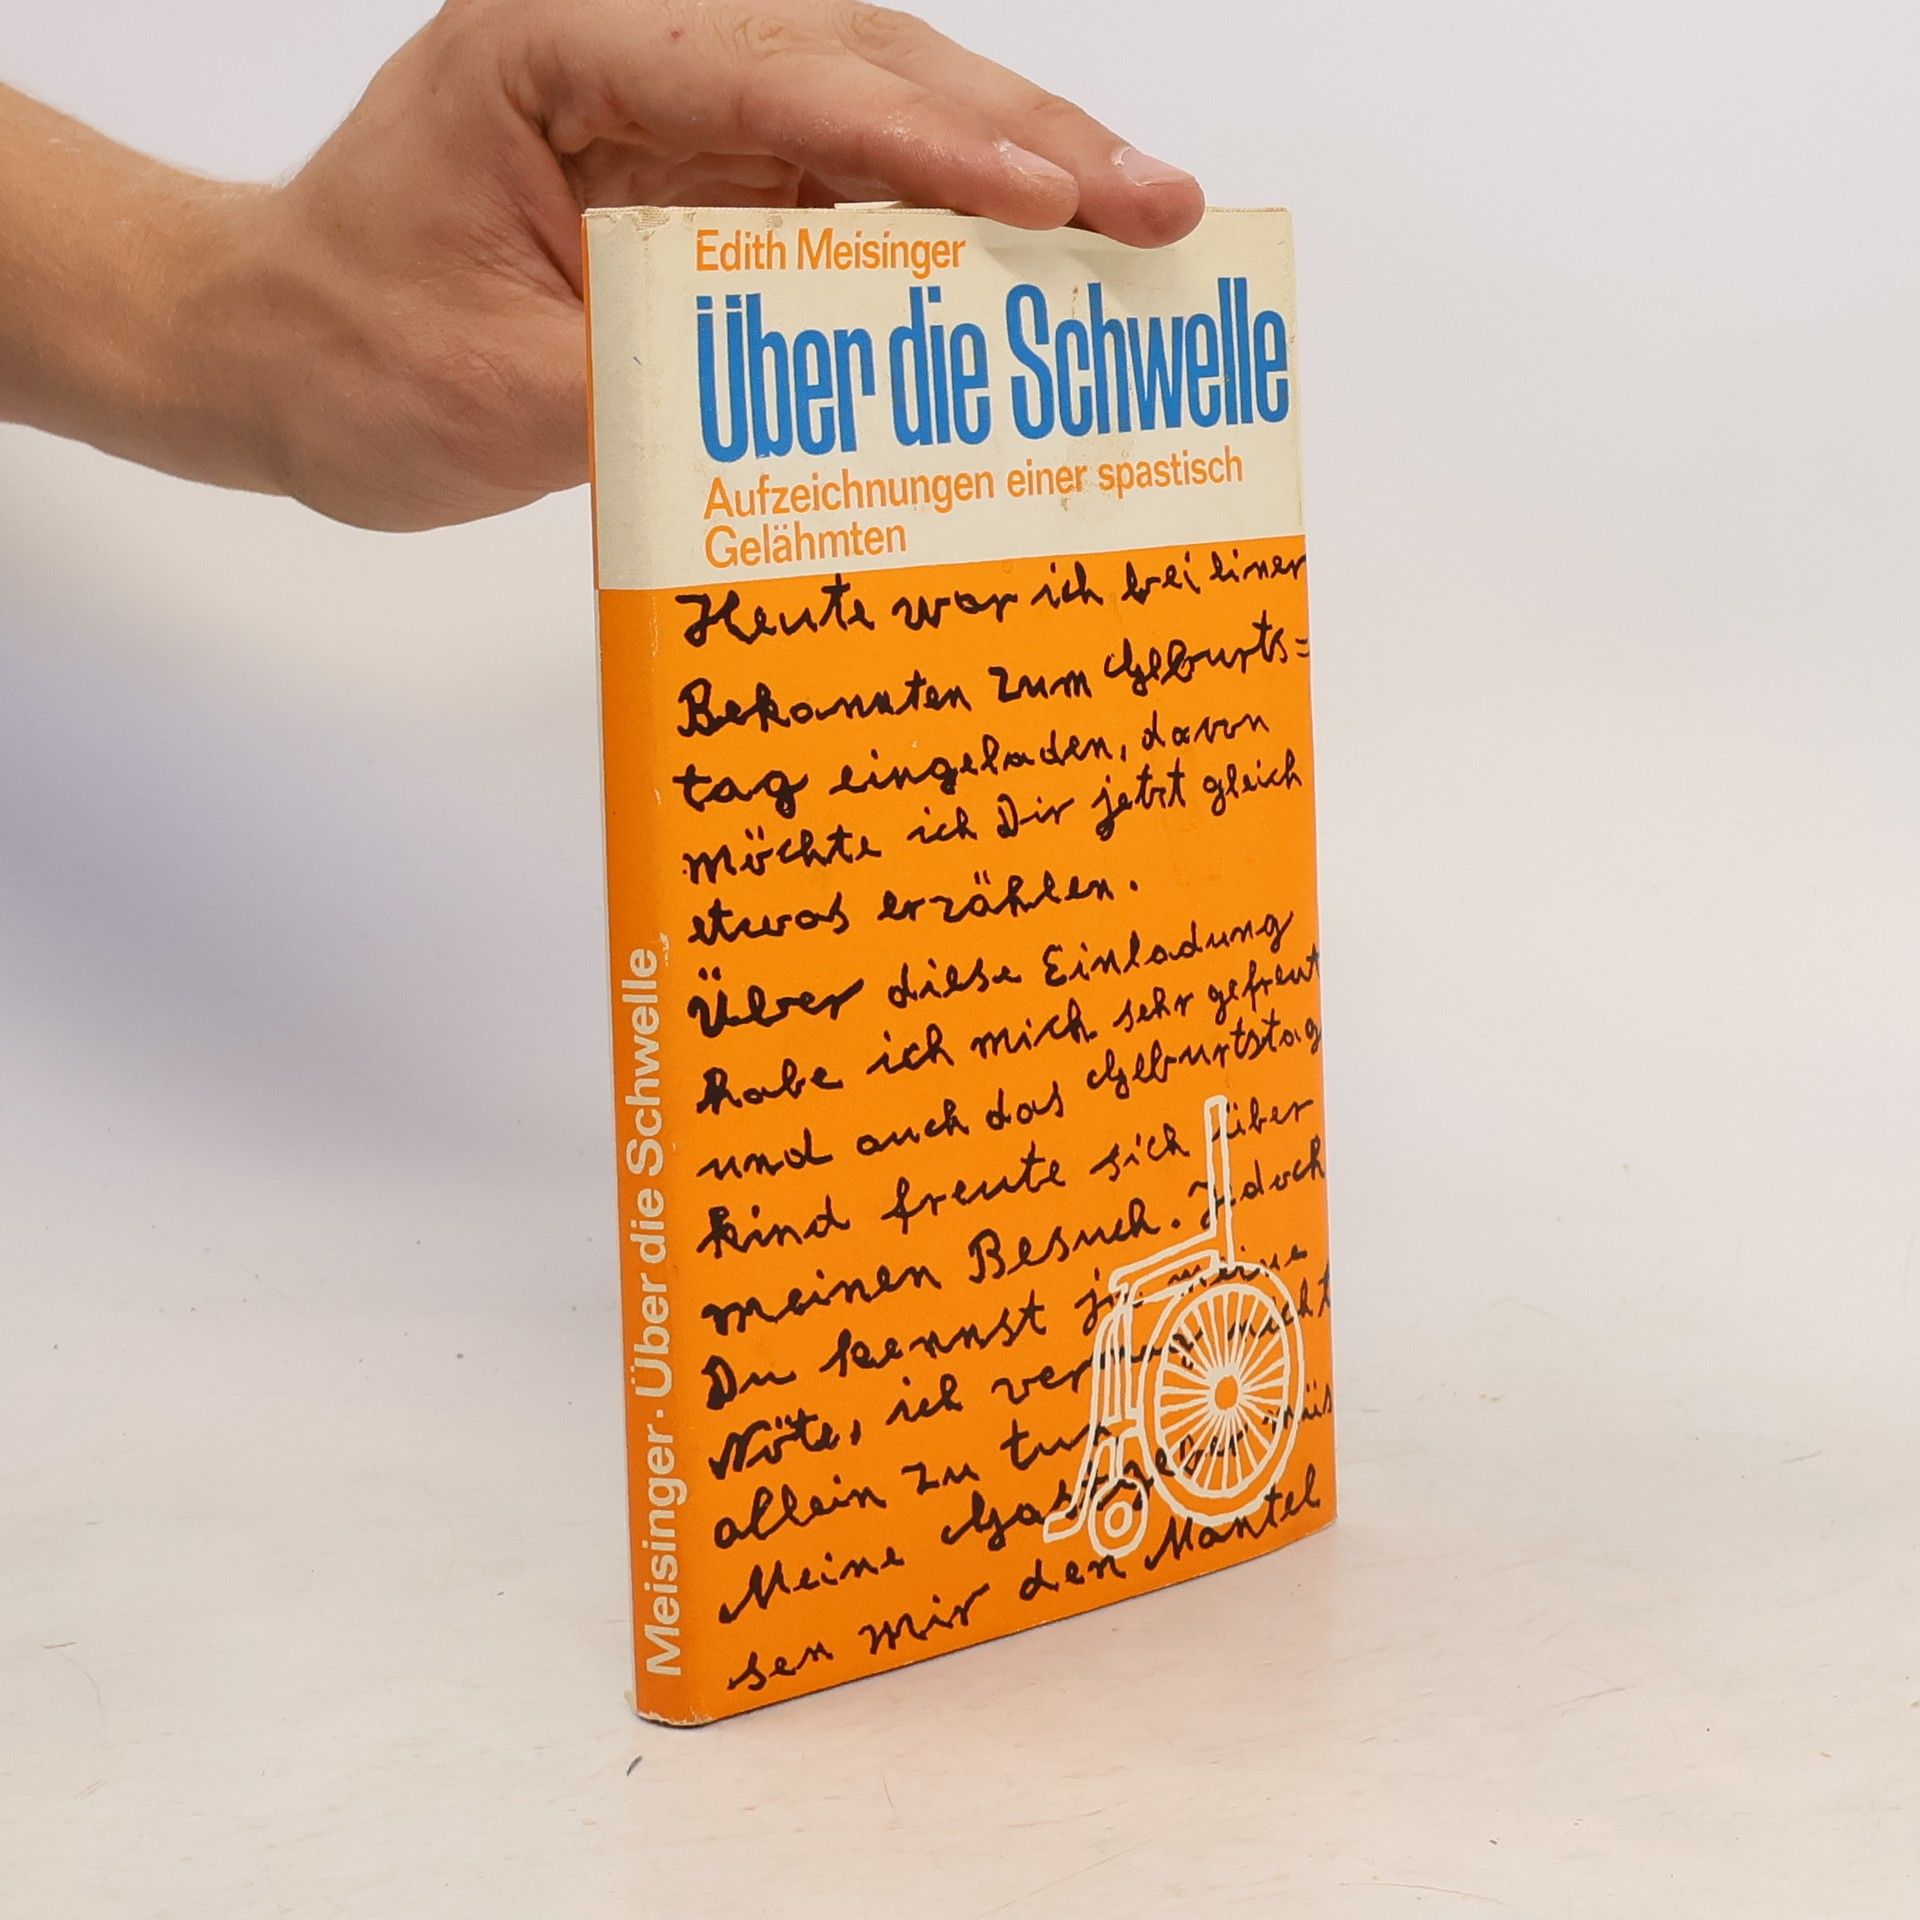 Edith Meisinger
Über die Schwelle
Aufzeichnungen einer spastisch
Gelähmten
Heute war ich bei einer
Bekannten zum Geburts=
tag eingeladen, davon
möchte ich Dir jetzt gleich
etwas erzählen.
Über diese Einladung
habe ich mich sehr gefreut
und auch das Geburtstag
kind freute sich über
meinen Besuch. Jedoch
Du kennst ja meine
Nöte, ich vermag nicht
allein zu tun
Meine Gastgeber müs
sen mir den Mantel
Meisinger · Über die Schwelle